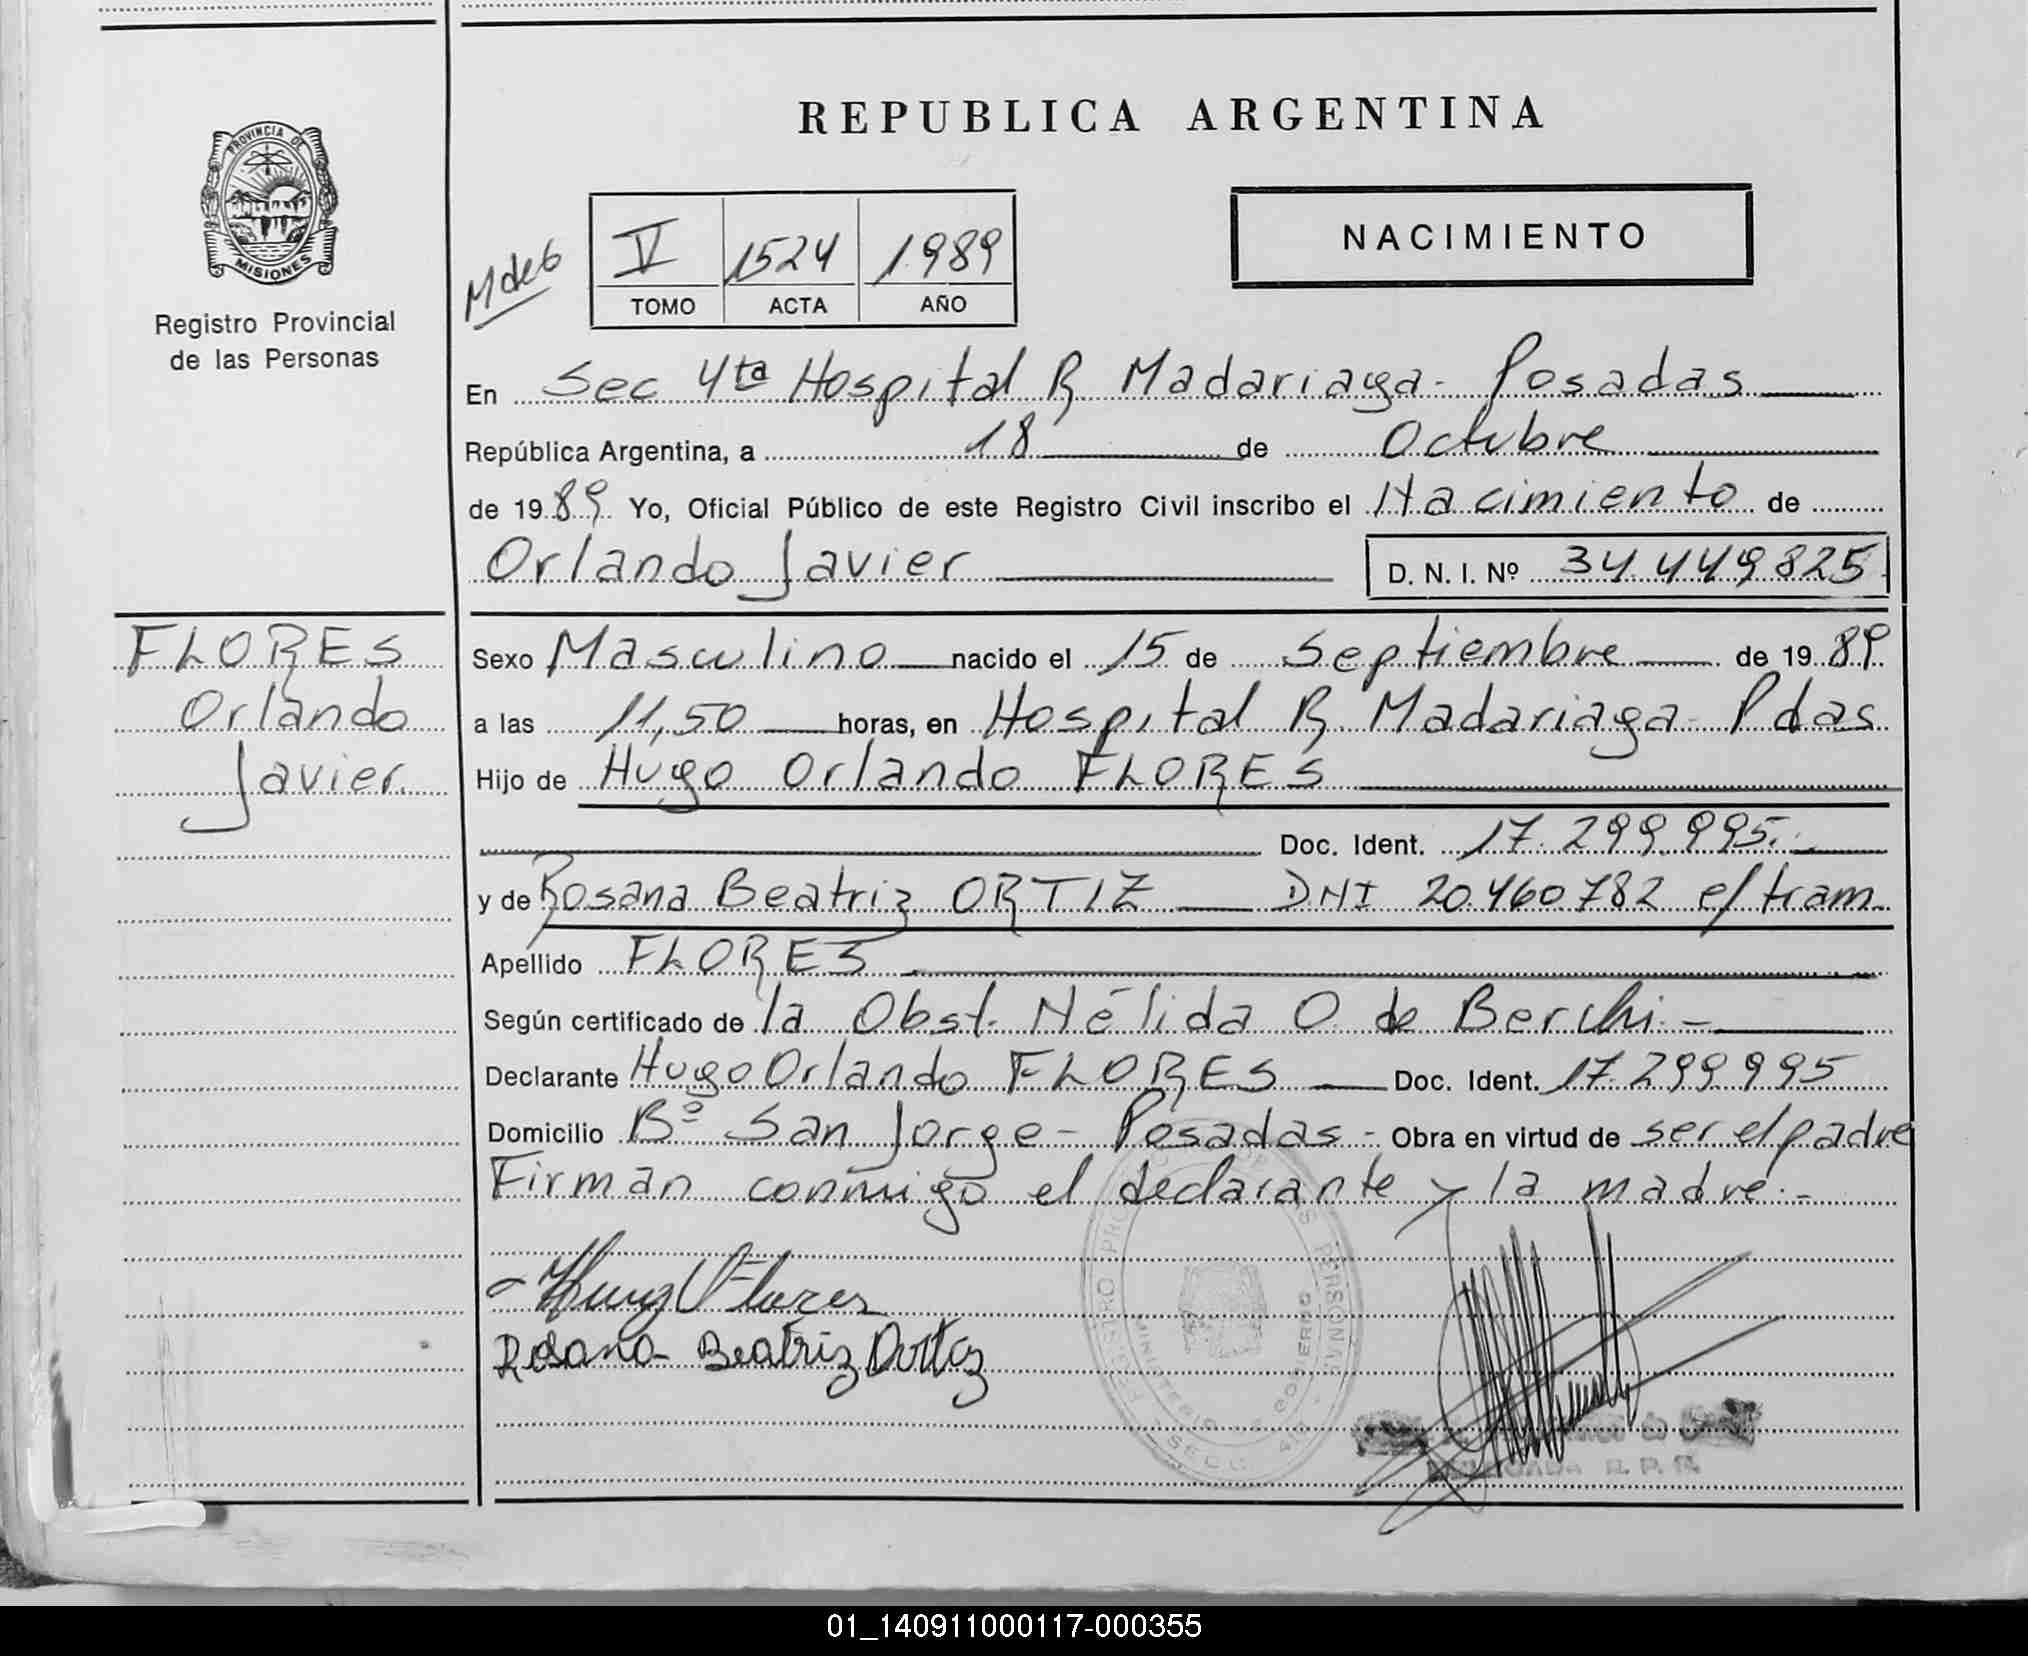 REPUBLICA ARGENTINA
PROVINCIA DE
MISIONES
Registro Provincial
de las Personas
NACIMIENTO
M de 6
V 1524 1989
TOMO ACTA AÑO
En Sec 4ta Hospital R. Madariaga - Posadas
República Argentina, a 18 de Octubre
de 1989 Yo, Oficial Público de este Registro Civil inscribo el Nacimiento de
Orlando Javier D. N. I. Nº 34.449825
FLORES
Orlando
Javier.
Sexo Masculino nacido el 15 de Septiembre de 1989
a las 11,50 horas, en Hospital R. Madariaga - Pdas
Hijo de Hugo Orlando FLORES
Doc. Ident. 17.299.995.
y de Rosana Beatriz ORTIZ DNI 20.460.782 e/ tram.
Apellido FLORES
Según certificado de la Obst. Nélida O. de Berchi.-
Declarante Hugo Orlando FLORES Doc. Ident. 17.299.995
Domicilio Bº San Jorge - Posadas - Obra en virtud de ser el padre
Firman conmigo el declarante y la madre.-
Flores
Rosana Beatriz Ortiz
REGISTRO PERSONAS
MINISTERIO DE GOBIERNO
SECC. 4ta
R. P. P.
01_140911000117-000355